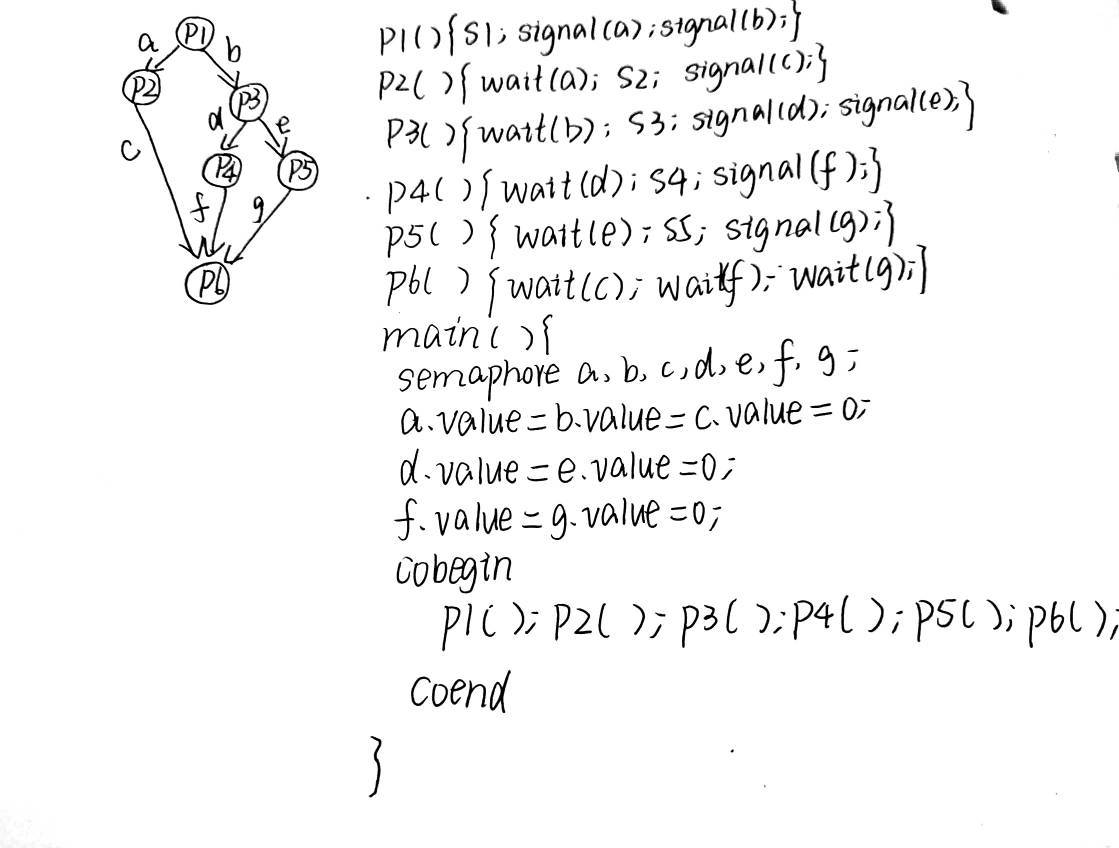 P1
a b
P2 P3
d e
c
P4 P5
f g
P6
P1(){S1; signal(a); signal(b);}
P2( ){ wait(a); S2; signal(c);}
P3( ){wait(b); S3; signal(d); signal(e);}
P4( ){wait(d); S4; signal(f);}
P5( ){ wait(e); S5; signal(g);}
P6( ) {wait(c); wait(f); wait(g);}
main( ){
semaphore a, b, c, d, e, f, g;
a.value=b.value=c.value=0;
d.value=e.value=0;
f.value=g.value=0;
cobegin
P1( ); P2( ); P3( ); P4( ); P5( ); P6( );
coend
}